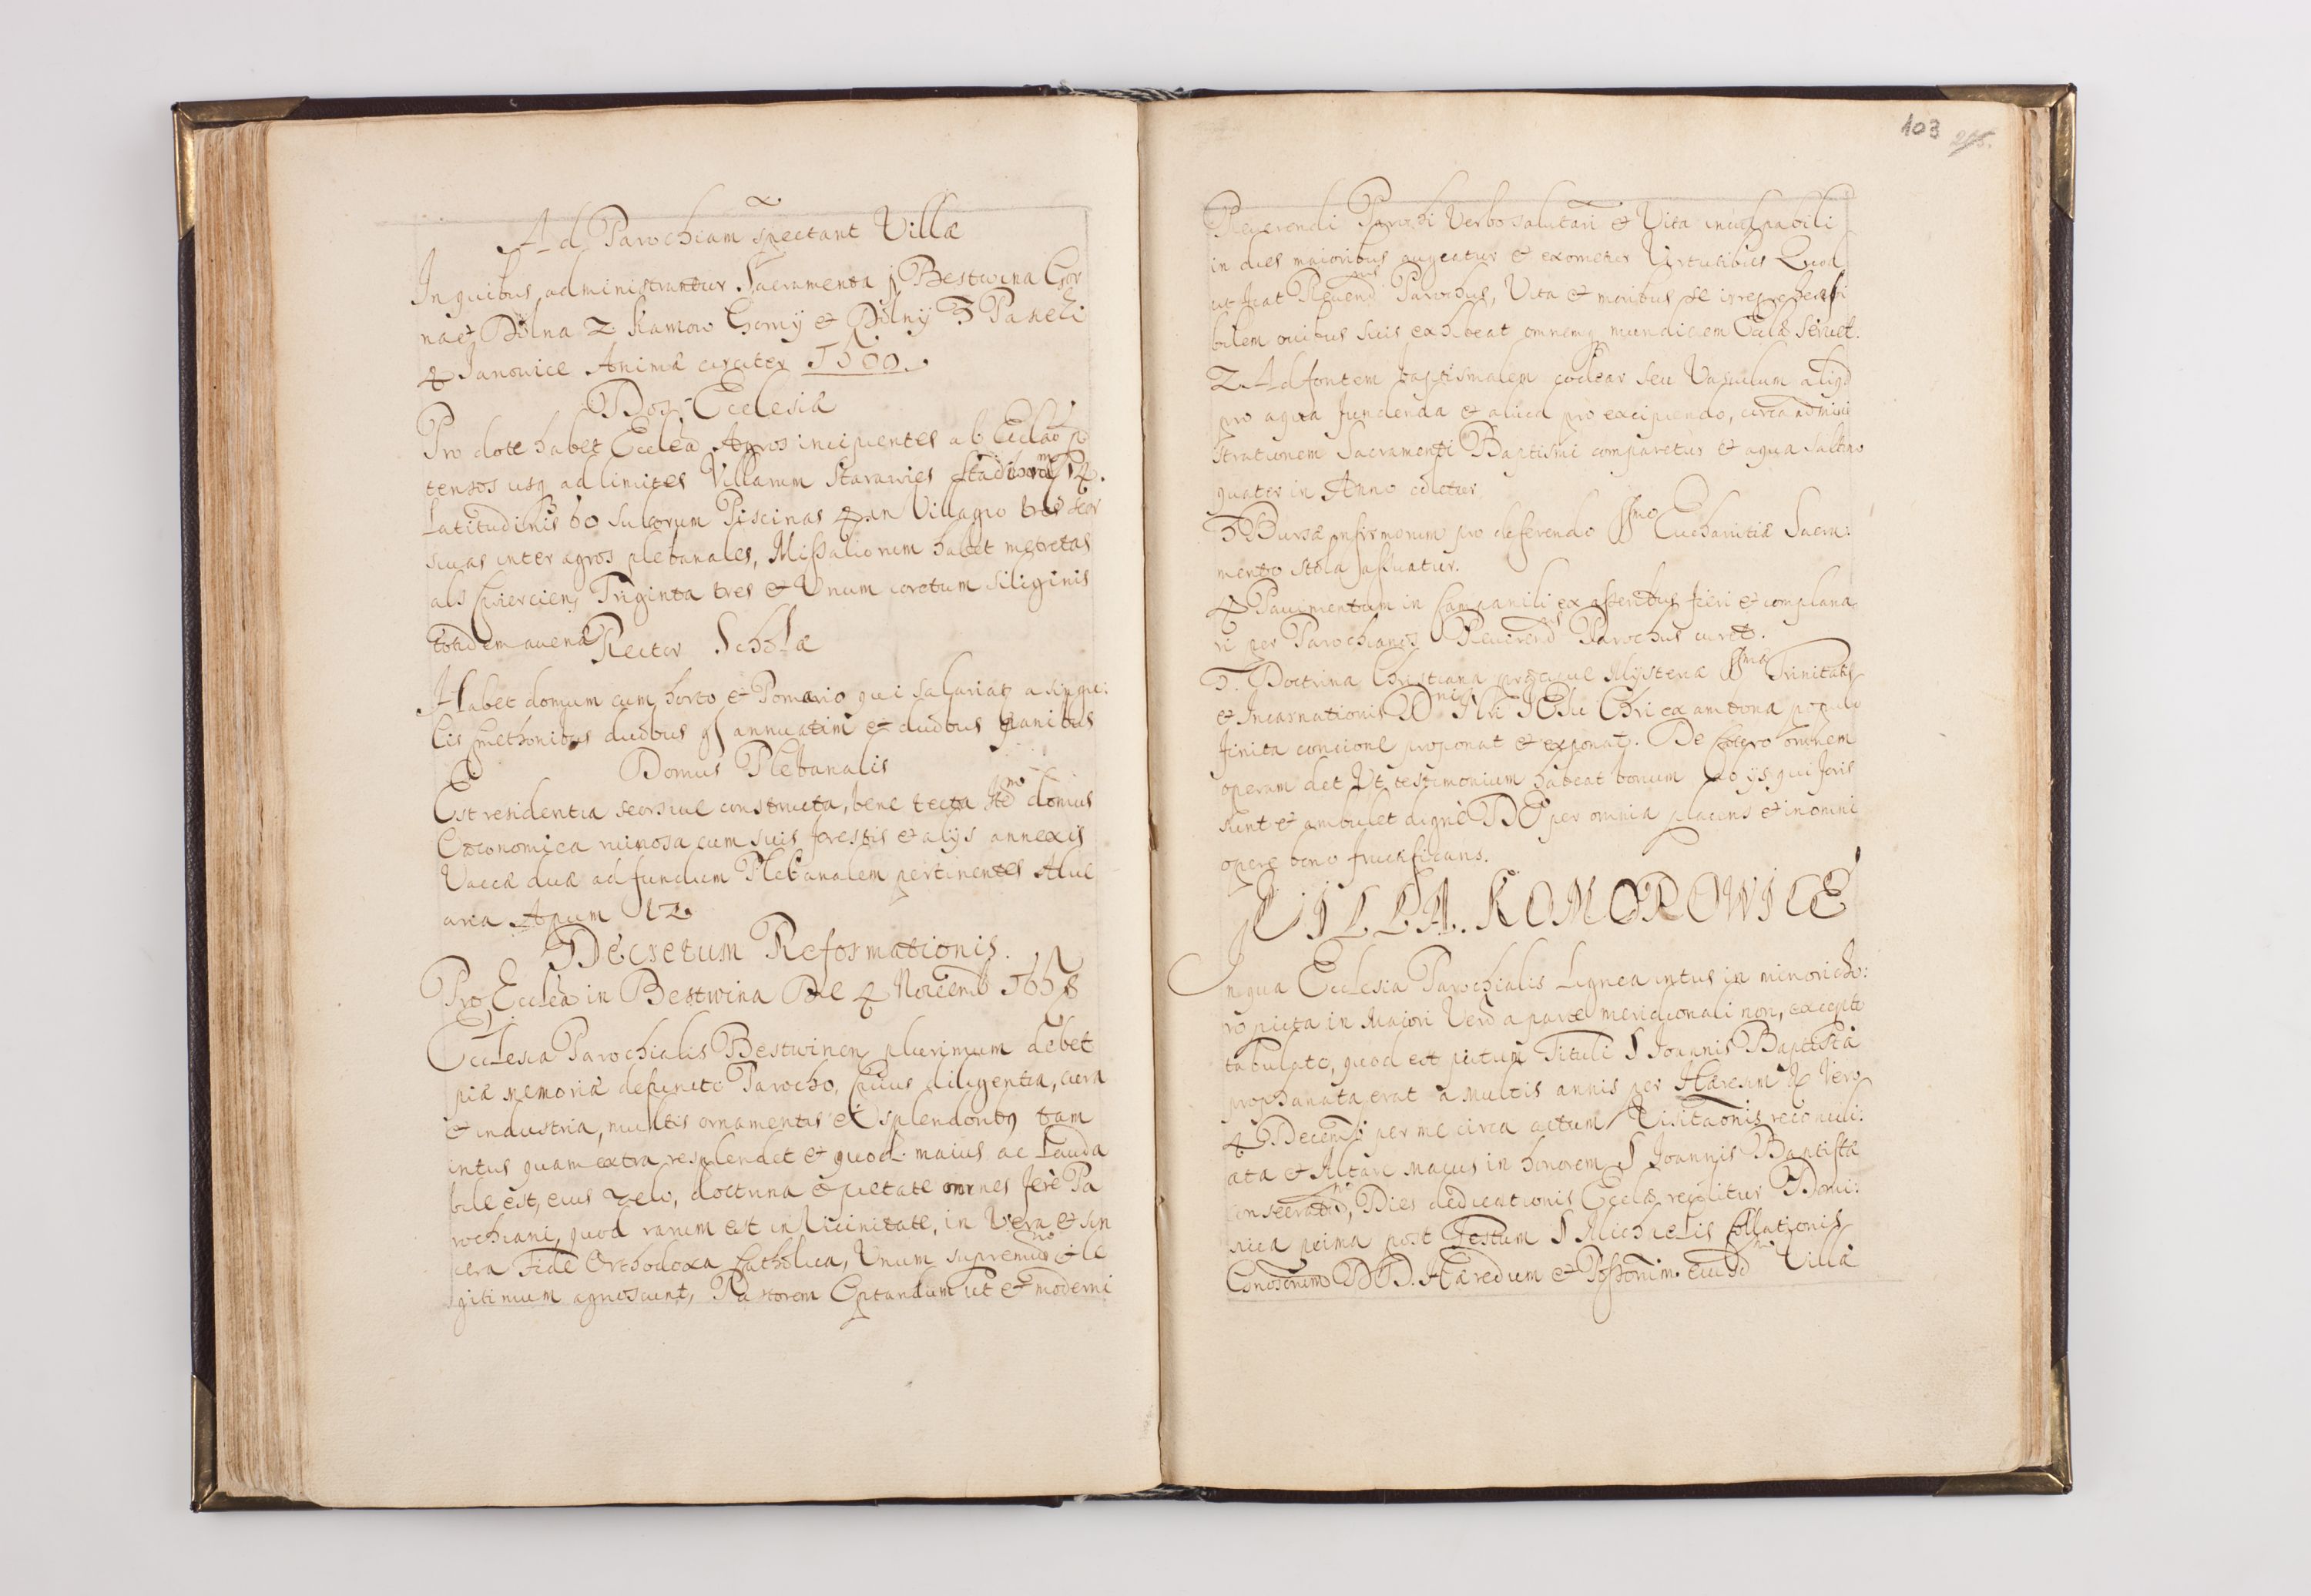 Ad Parochiam spectant Villæ
In quibus administrantur Sacramenta 1 Bestwina Gor
na et Dolna 2 Kaniow Gorny & Dolny 3
4 Janowice Animæ circiter 1500.
Dos Ecclesiæ
Pro dote habet Ecclea Agros incipientes ab Ecclia
tensos usq ad limites Villarum Starawies
Latitudinis 60 Sulcorum Piscinas 4 in Villagio tres seor
sivas inter agros plebanales, Missaliorum habet metretas
als Cwiercien, Triginta tres & Unum coretum siliginis
totidem avenæ
Rector Scholæ
Habet domum cum horto & Pomario qui salariat a singu:
lis Cmethonibus duobus gs annuatim & duobus panibus
Domus Plebanalis
Est residentia seorsive constructa, bene tecta domus
Oeconomica ruinosa cum suis
& alijs annexis
Vaccæ duæ ad fundum Plebanalem pertinentes Alve
aria Apum 12
Decretum Reformationis.
Pro Ecclea in Bestwina Die 4 Novemb 1658
Ecclesia Parochialis Bestwinen plurimum debet
piæ memoriæ defuncto Parocho, Cuius diligentia, cura
& industria, multis ornamentis et splendoribq tam
intus quam extra resplendet & quod maius ac Lauda
bile est, eius zelo, doctrina & pietate omnes ferè Pa
rochiani, quod rarum est in vicinitate, in Vera & sin
cera Fide Orthodoxa Catholica, Unum supremum & le
gitimum agnoscunt, Pastorem Optandum ut & moderni
103 205.
Reverendi Parochi Verbo salutari & Vita inculpabili
in dies maioribus augeatur & exornetur Virtutibus Quod
ut fiat Revend9 Parochus, Vita & moribus se irreprehensi
bilem ovibus suis exhibeat omnemq mundiciem Ecclæ servet.
2 Ad fontem baptismalem coclear seu Vasculum aliqd
pro aqua fundenda & aliud pro excipiendo, circa admini
strationem Sacramenti Baptismi comparetur & aqua saltim
quater in Anno
3 Bursæ infirmorum pro deferendo SSmo Eucharistiæ Sacra:
mento stola assuatur.
4 Pavimentum in Campanili ex asseribus fieri & complana
ri per Parochianos Reverend9 Parochus curet.
5. Doctrina Christiana præcipue Mysteria SSmæ Trinitatis
& Incarnationis Dni Nri JEsu Chri ex ambona populo
finita concione proponat & exponat. De cætero omnem
operam det Ut testimonium habeat bonum ab ijs qui foris
sunt & ambulet dignè DEo per omnia placens & in omni
opere bono fructificans.
VILLA. KOMOROWICE
In qua Ecclesia Parochialis Lignea intus in minori cho:
ro picta in Maiori Vero a parte meridionali non, excepto
tabulato, quod est pictum Tituli S Joannis Baptistæ
prophanata erat a multis annis per Hæresim & Vero
4 Decemb per me circa actum Visitaonis reconcili:
ata & Altare maius in honorem S Joannis Baptistæ
consecratum, Dies dedicationis Ecclæ recolitur Domi:
nica prima post Festum S Michælis Collationis
Gnosorum DD. Hæredum & Possorum eiusd Villæ